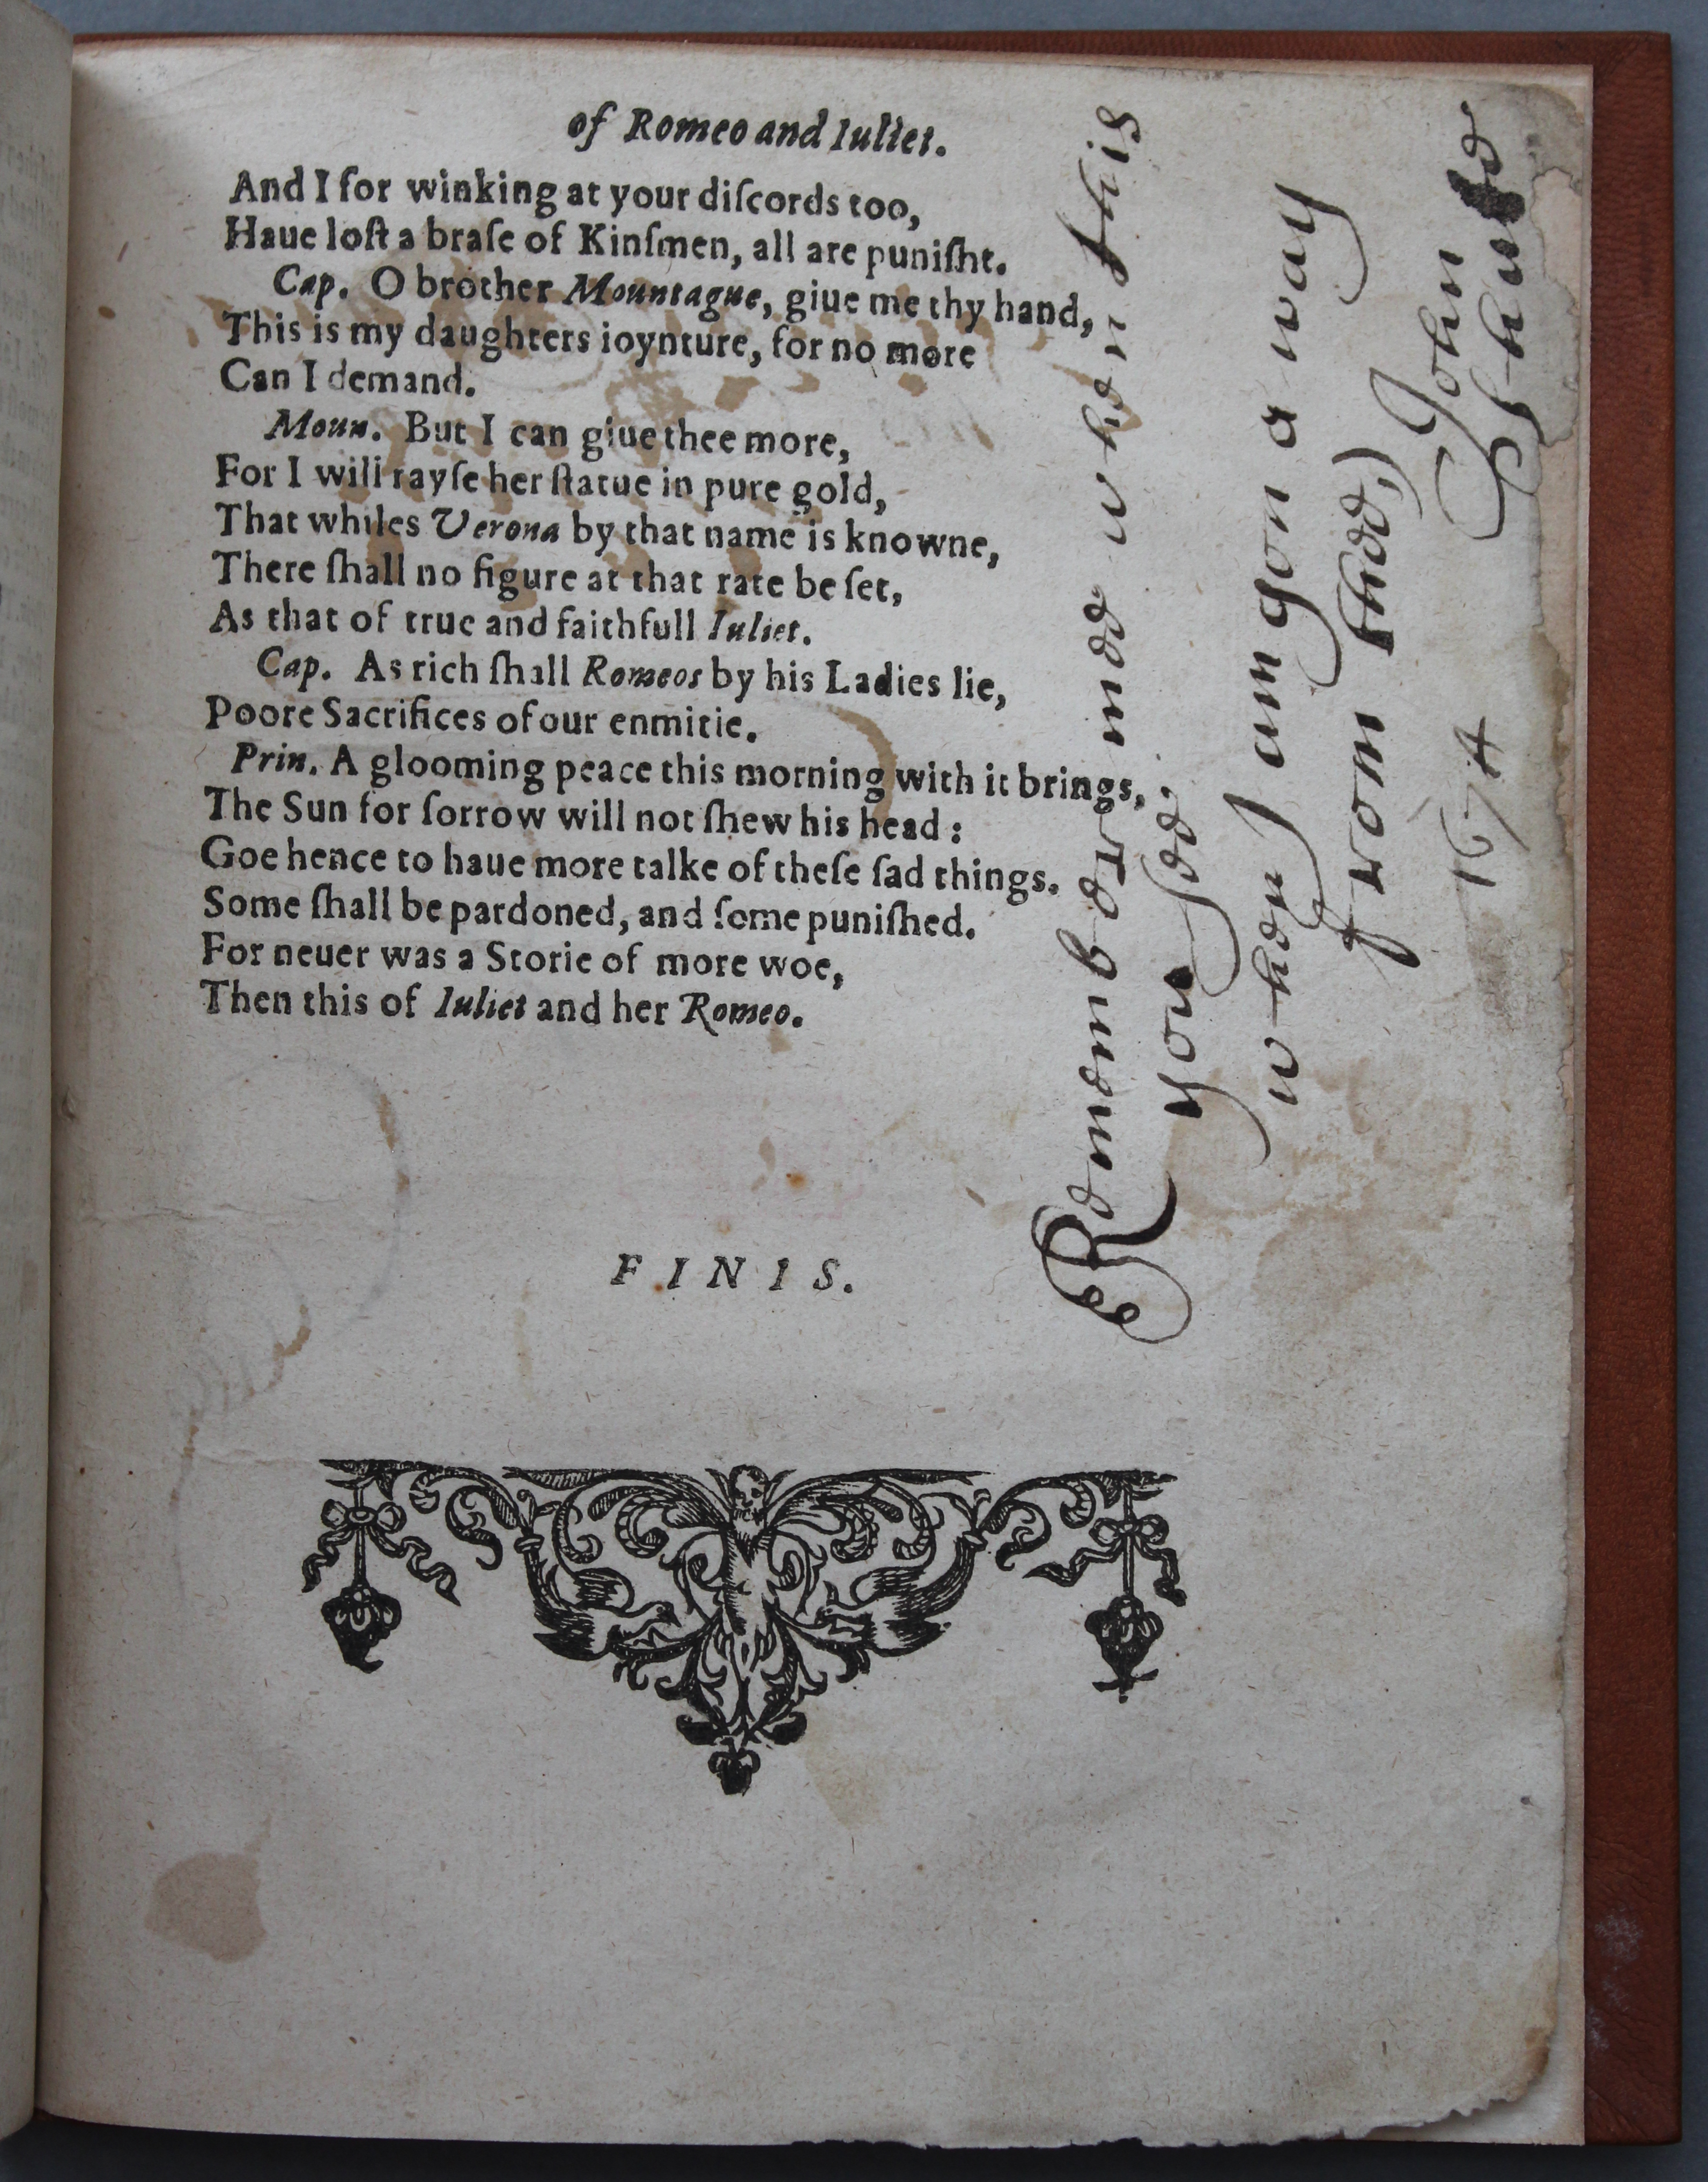 of Romeo and Iuliet.
And I for winking at your diſcords too,
Haue loſt a braſe of Kinſmen, all are puniſht.
Cap. O brother Mountague, giue me thy hand,
This is my daughters ioynture, for no more
Can I demand.
Moun. But I can giue thee more,
For I will rayſe her ſtatue in pure gold,
That whiles Verona by that name is knowne,
There ſhall no figure at that rate be ſet,
As that of true and faithfull Iuliet.
Cap. As rich ſhall Romeos by his Ladies lie,
Poore Sacrifices of our enmitie.
Prin. A glooming peace this morning with it brings,
The Sun for ſorrow will not ſhew his head:
Goe hence to haue more talke of theſe ſad things.
Some ſhall be pardoned, and ſome puniſhed.
For neuer was a Storie of more woe,
Then this of Iuliet and her Romeo.
FINIS.
Remember mee when this
you ſee.
when I am gon a way
from thee,)
John
1674